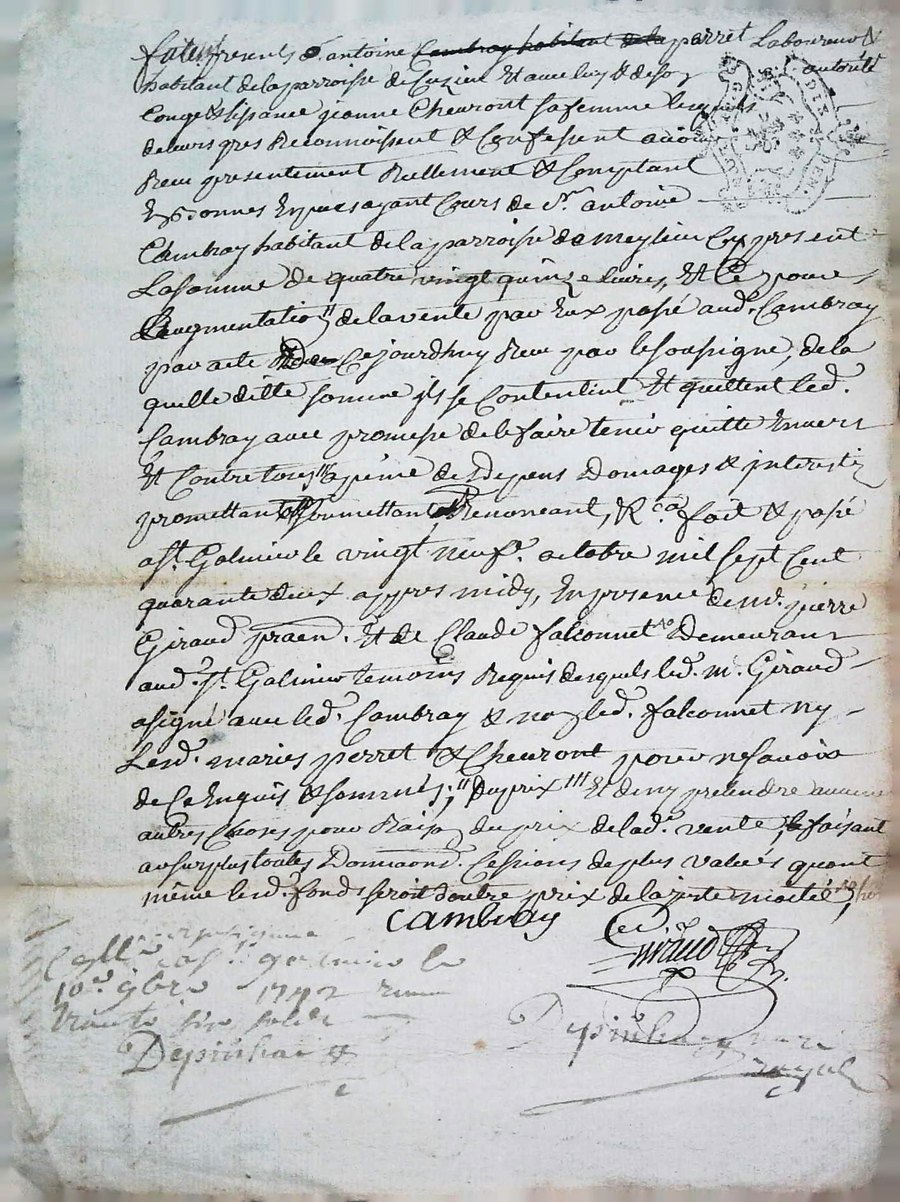 furent presents Sr. antoine Cambray habitant de la parret Laboureur &
habitant de la parroisse de Cuzieu Et avec luy & de son autorité
Congé & lisance jeanne Cheuront sa femme lesquels
de leurs gres Reconnoissent & Confessent avoir
Reçu presentement Reellement & Comptant
En bonnes Especes ayant Cours de Sr. antoine
Cambray habitant de la parroisse de meylieu Cy present
La somme de quatre vingt quinze livres, Et Ce pour
L'augmentation de la vente par Eux passé aud. Cambray
par acte Cejourdhuy Reçu par le soussigné, de la
quelle ditte somme ils se Contentent Et quittent led.
Cambray avec promesse de le faire tenir quitte Envers
Et Contre tous a peine de tous depens Domages & interestz
promettant soumettant Renonceant, &ca. fait & passé
a St. Galmier le vingt neufe. octobre mil sept Cent
quarante deux appres midy, En presence de m. pierre
Giraud praen. Et de Claude falconnet Demeurant
aud. St. Galmier temoins Requis desquels led. m. Giraud
a signé avec led. Cambray & non led. falconnet ny
Lesd. maries perret & Cheuront pour ne savoir
de Ce Enquis & sommés; " du prix "' Et de ny pretendre aucune
autres Choses pour Raison du prix de lad. vente, faisant
au surplus toutes Cessions de plus values quant
même lesd. fonds seroit d'outre prix de la juste moitié,
Cambray
Giraud
Coll
a St. galmier le
10e. 9bre 1742 Reçu
trente six sols
Depinhac
Depinhac nore
royal